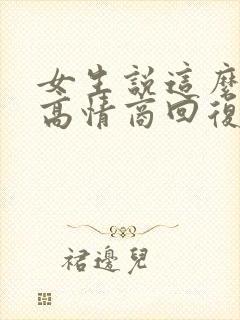 女生說這麼
高情商回復
裙邊兒